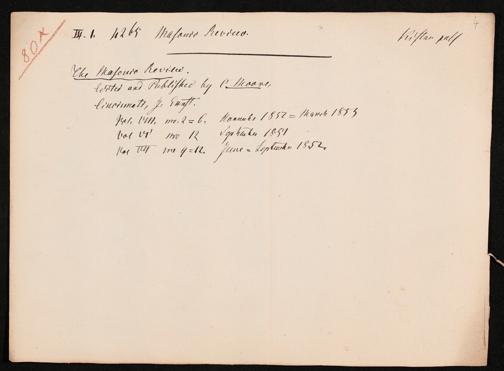 80x
III. 1. 4265 Masonic Review.
4
The Masonic Review.
Edited and Published by C. Moore,
Cincinnati, J. Ernst.
Vol. VIII, no. 2=6. November 1852 = March 1853
Vol VI no 12 September 1851
Vol VII no 9=12. June = September 1852.